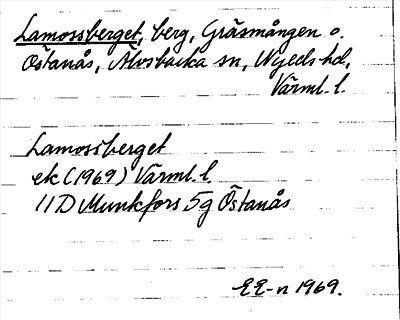 Lamossberget, berg, Gräsmången o.
Östanås, Älvsbacka sn, Nyeds hd,
Värml. l.
Lamossberget
ek (1969) Värml. l.
11D Munkfors 5g Östanås
EE-n 1969.